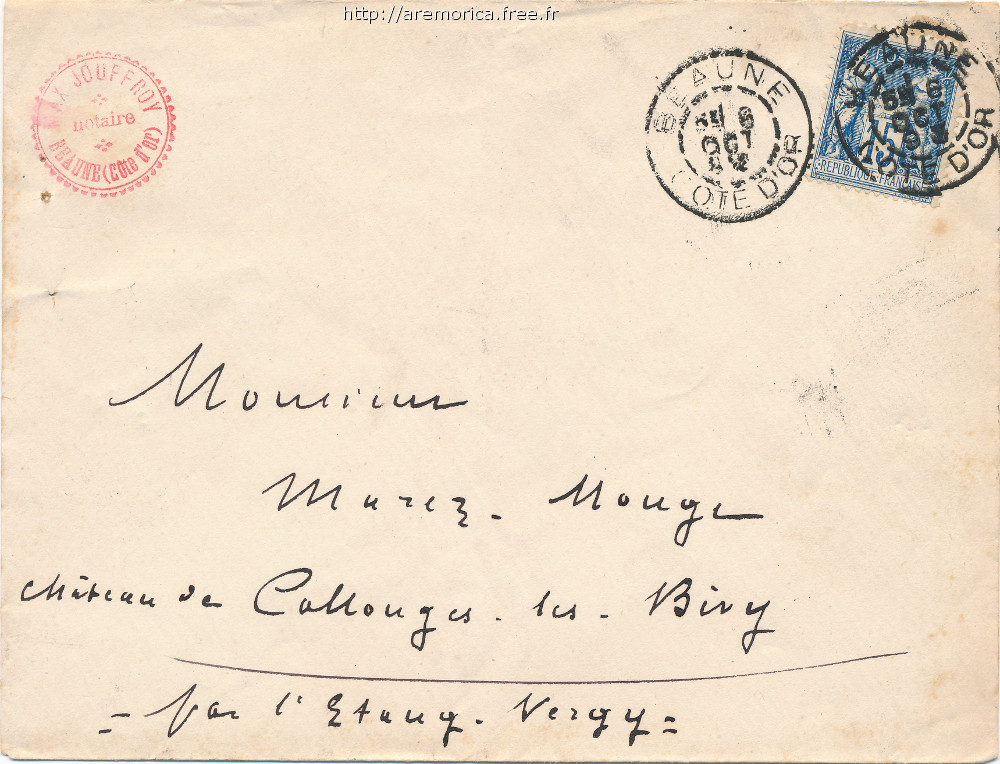 http://aremorica.free.fr
MAX JOUFFROY
notaire
BEAUNE (Côte d'or)
BEAUNE
6
OCT
COTE D'OR
BEAUNE
6
OCT
COTE D'OR
15
REPUBLIQUE FRANCAISE
Monsieur
Marez-Monge
château de Collonges-les-Bévy
- par l'Etang-Vergy =